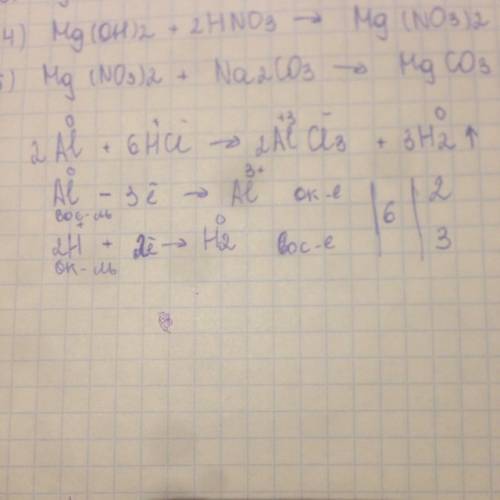 4) Mg(OH)2 + 2HNO3 → Mg(NO3)2
) Mg(NO3)2 + Na2CO3 → MgCO3
0 + - +3 - 0
2Al + 6HCl → 2AlCl3 + 3H2↑
0 3+
Al - 3ē → Al ок-е | 6 | 2
вос-ль
+ 0
2H + 2ē → H2 вос-е | | 3
ок-ль